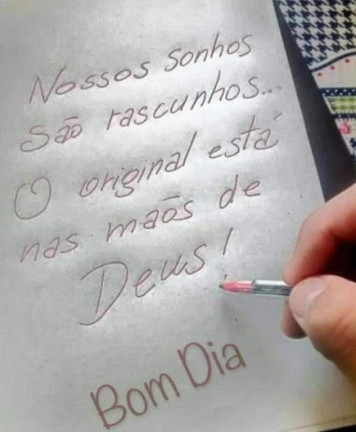 Nossos sonhos
São rascunhos...
O original está
nas maõs de
Deus!
Bom Dia